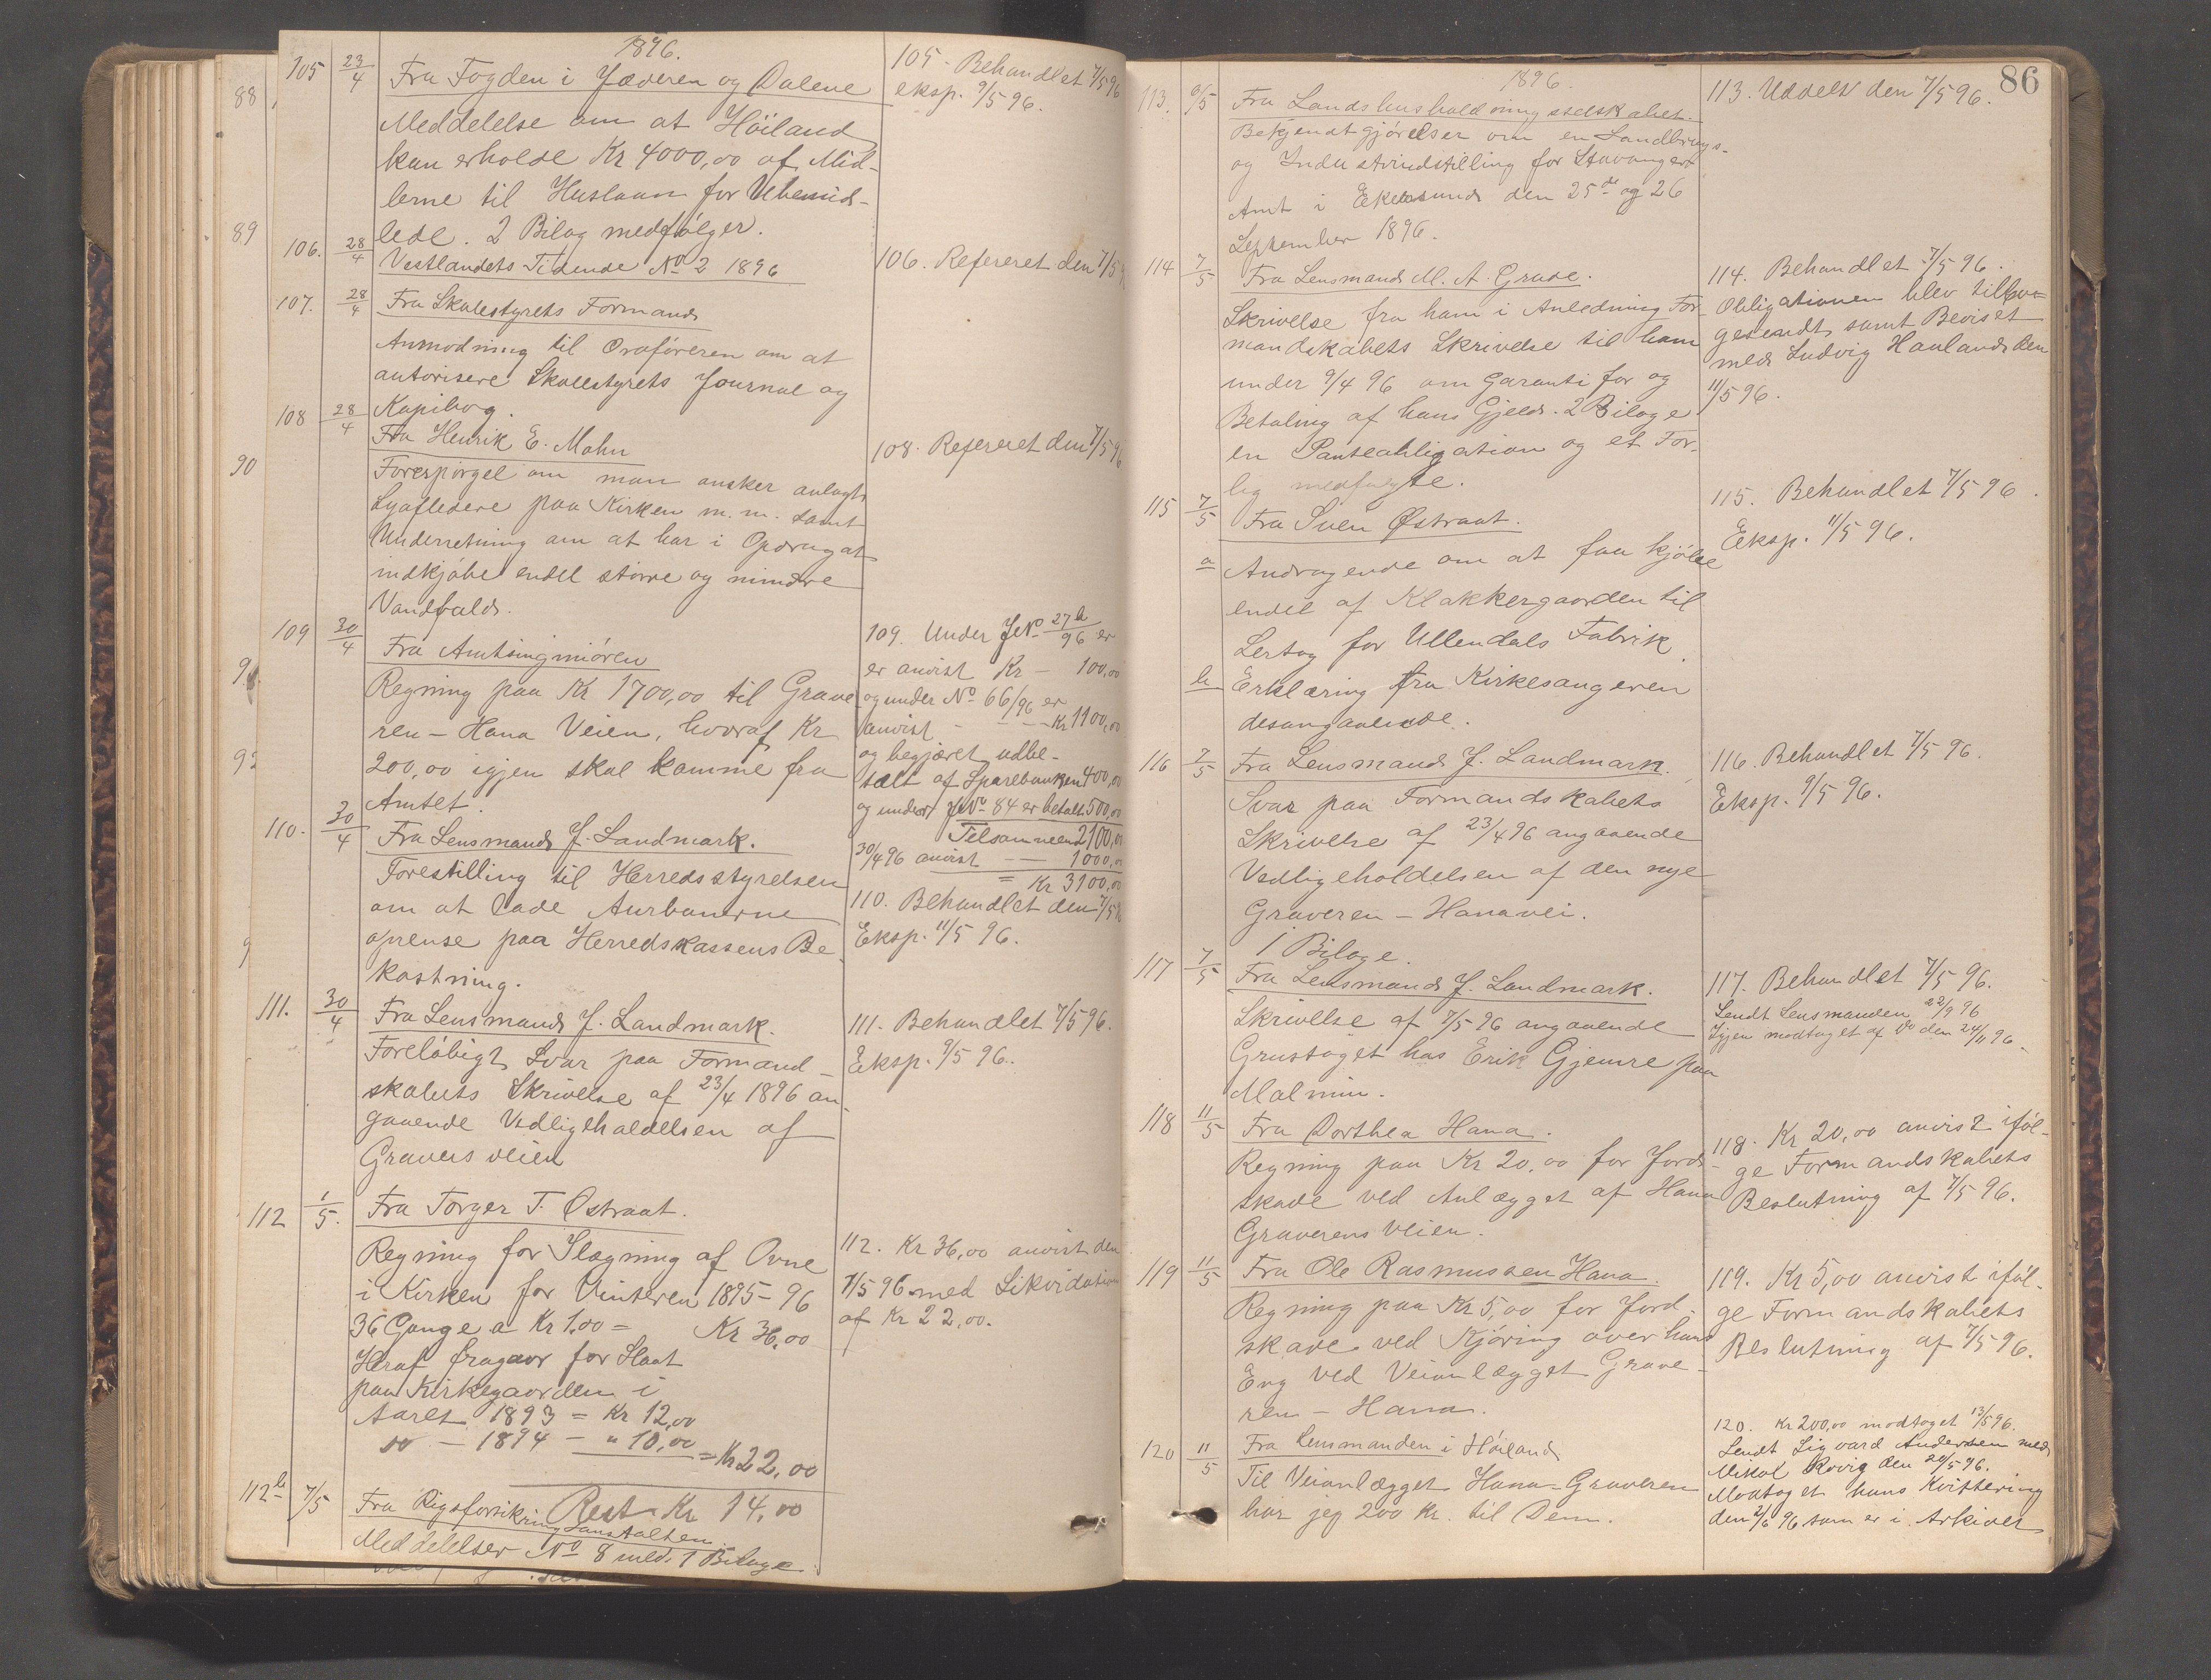 1896.
105 23/4 Fra Fogden i Jæderen og Dalene
Meddelelse om at Höiland
kan erholde Kr 4000,00 af Mid-
lerne til Huslaan for Ubemid-
lede. 2 Bilag medfølger.
105. Behandlet 7/5 96
eksp. 9/5 96.
106. 28/4 Vestlandets Tidende No 2 1896
106. Refereret den 7/5 96
107. 28/4 Fra Skolestyrets Formand
Anmodning til Ordföreren om at
autorisere Skolestyrets Journal og
Kopibog.
108 28/4 Fra Henrik E. Mohn
Forespörgel om man önsker anlagt
Lynafledere paa Kirken m. m. samt
Underretning om at har i Opdrag at
indkjöbe endel större og mindre
Vandfald.
108. Refereret den 7/5 96
109 30/4 Fra Amtsingeniören
Regning paa Kr 1700,00 til Grave
ren – Hana Veien, hvoraf Kr
200,00 igjen skal komme fra
Amtet.
109. Under J No 27b/96 er
er anvist Kr – 100,00
og under No 66/96 er
anvist – – – Kr 1100,00
og begjæret udbe-
talt af Sparebanken 400,00
og under J No 84 er betalt 500,00
Tilsammen 2100,00
30/4 96 anvist – – 1000,00
= Kr 3100,00
110. 30/4 Fra Lensmand J. Landmark.
Forestilling til Herredsstyrelsen
om at lade Aurbanerne
oprense paa Herredskassens Be-
kostning.
110. Behandlet den 7/5 96
Eksp. 11/5 96.
111. 30/4 Fra Lensmand J. Landmark.
Foreløbigt Svar paa Formand-
skabets Skrivelse af 23/4 1896 an-
gaaende Vedligeholdelsen af
Gravers veien
111. Behandlet 7/5 96.
Eksp. 9/5 96.
112 1/5. Fra Torger T. Östraat.
Regning for Ilægning af Ovne
i Kirken for Vinteren 1895–96
36 Gange a Kr 1,00 = Kr 36,00
Heraf fragaar for Slaat
paa Kirkegaarden i
Aaret 1893 = Kr 12,00
do – 1894 – " 10,00 = Kr 22,00
Rest Kr 14,00
112. Kr 36,00 anvist den
7/5 96 med Likvidation
af Kr 22,00.
112 b 7/5 Fra Rigsforsikringsanstalten
Meddelelser No 8 med 1 Bilage
88
89
90
9
1896.
86
113. 6/5 Fra Landhusholdningsselskabet.
Bekjendtgjörelser om en Landbrugs-
og Industriudstilling for Stavanger
Amt i Ekersund den 25de og 26
September 1896.
113. Uddelt den 7/5 96.
114 7/5 Fra Lensmand M. A. Grude.
Skrivelse fra ham i Anledning For-
mandskabets Skrivelse til ham
under 9/4 96 om Garanti for og
Betaling af hans Gjeld. 2 Bilage
en Panteobligation og et For-
lig medfulgte.
114. Behandlet 7/5 96.
Obligationen blev tilba-
gesendt samt Beviset
med Ludvig Hauland den
11/5 96.
115 7/5 Fra Sven Østraat.
a Andragende om at faa kjöbe
endel af Klokkergaarden til
Lertag for Ullendals Fabrik.
b Erklæring fra Kirkesangeren
desangaaende.
115. Behandlet 7/5 96.
Eksp. 11/5 96.
116 7/5 Fra Lensmand J. Landmark.
Svar paa Formandskabets
Skrivelse af 23/4 96 angaaende
Vedligeholdelsen af den nye
Graveren – Hanavei.
1 Bilage.
116. Behandlet 7/5 96.
Eksp. 9/5 96.
117 7/5 Fra Lensmand J. Landmark.
Skrivelse af 7/5 96 angaaende
Grustaget hos Erik Gjemre paa
Malmin.
117. Behandlet 7/5 96.
Sendt Lensmanden 22/9 96
Igjen modtaget af do den 24/11 96.
118 11/5 Fra Dorthea Hana.
Regning paa Kr 20,00 for Jord-
skade ved Anlægget af Hana
Graverens veien.
118. Kr 20,00 anvist iföl-
ge Formandskabets
Beslutning af 7/5 96.
119 11/5 Fra Ole Rasmussen Hana.
Regning paa Kr 5,00 for Jord-
skade ved Kjöring over hans
Eng ved Veianlægget Grave-
ren – Hana.
119. Kr 5,00 anvist iföl-
ge Formandskabets
Beslutning af 7/5 96.
120 11/5 Fra Lensmanden i Höiland
Til Veianlægget Hana–Graveren
har jeg 200 Kr. til Dem.
120. Kr 200,00 modtaget 13/5 96.
Sendt Sigvard Andersen med
Mikal Rovig den 20/5 96.
Modtaget hans Kvittering
den 2/6 96 som er i Arkivet